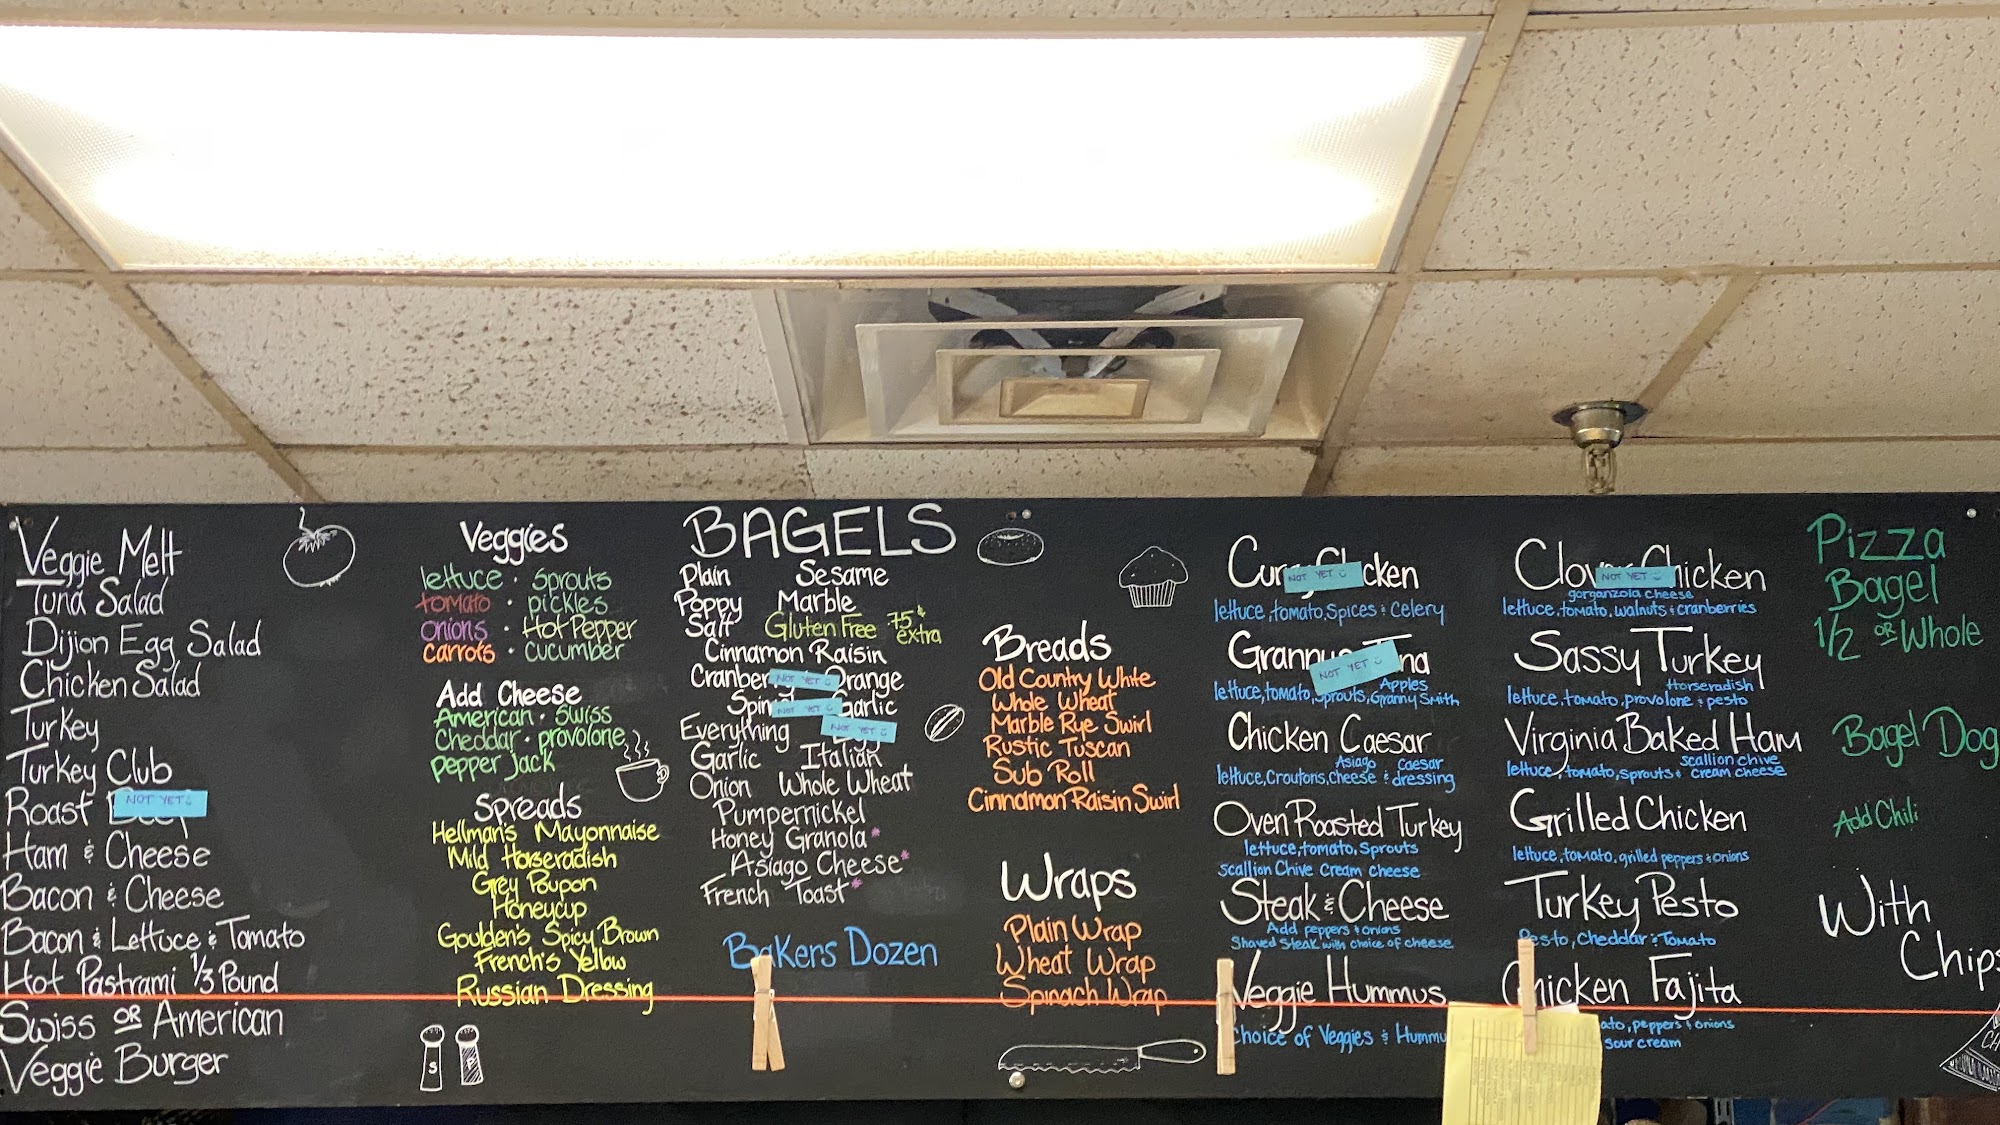 Veggie Melt
Tuna Salad
Dijion Egg Salad
Chicken Salad
Turkey
Turkey Club
Roast
NOT YET
Ham & Cheese
Bacon & Cheese
Bacon & Lettuce & Tomato
Hot Pastrami 1/3 Pound
Swiss OR American
Veggie Burger
Veggies
lettuce · sprouts
tomato · pickles
onions · Hot Pepper
carrots · cucumber
Add Cheese
American · Swiss
Cheddar · provolone
pepper jack
Spreads
Hellman's Mayonnaise
Mild Horseradish
Grey Poupon
Honeycup
Goulden's Spicy Brown
French's Yellow
Russian Dressing
S P
BAGELS
Plain Sesame
Poppy Marble
Salt Gluten Free 75¢ extra
Cinnamon Raisin
NOT YET Orange
NOT YET Garlic
Everything NOT YET
Garlic Italian
Onion Whole Wheat
Pumpernickel
Honey Granola*
Asiago Cheese*
French Toast*
Bakers Dozen
Breads
Old Country White
Whole Wheat
Marble Rye Swirl
Rustic Tuscan
Sub Roll
Cinnamon Raisin Swirl
Wraps
Plain Wrap
Wheat Wrap
Spinach Wrap
NOT YET
lettuce, tomato, Spices & Celery
NOT YET
Apples
lettuce, tomato, Sprouts, Granny Smith
Chicken Caesar
Asiago Caesar
lettuce, Croutons, Cheese & dressing
Oven Roasted Turkey
lettuce, tomato, Sprouts
scallion Chive Cream cheese
Steak & Cheese
Add peppers & onions
Shaved Steak with choice of cheese
Veggie Hummus
Choice of Veggies & Hummu
NOT YET
gorganzola cheese
lettuce, tomato, walnuts & cranberries
Sassy Turkey
Horseradish
lettuce, tomato, provolone & pesto
Virginia Baked Ham
scallion chive
lettuce, tomato, sprouts & cream cheese
Grilled Chicken
lettuce, tomato, grilled peppers & onions
Turkey Pesto
Pesto, Cheddar & Tomato
Chicken Fajita
ato, peppers & onions
sour cream
Pizza
Bagel
1/2 OR Whole
Bagel Dog
Add Chili
With
Chips